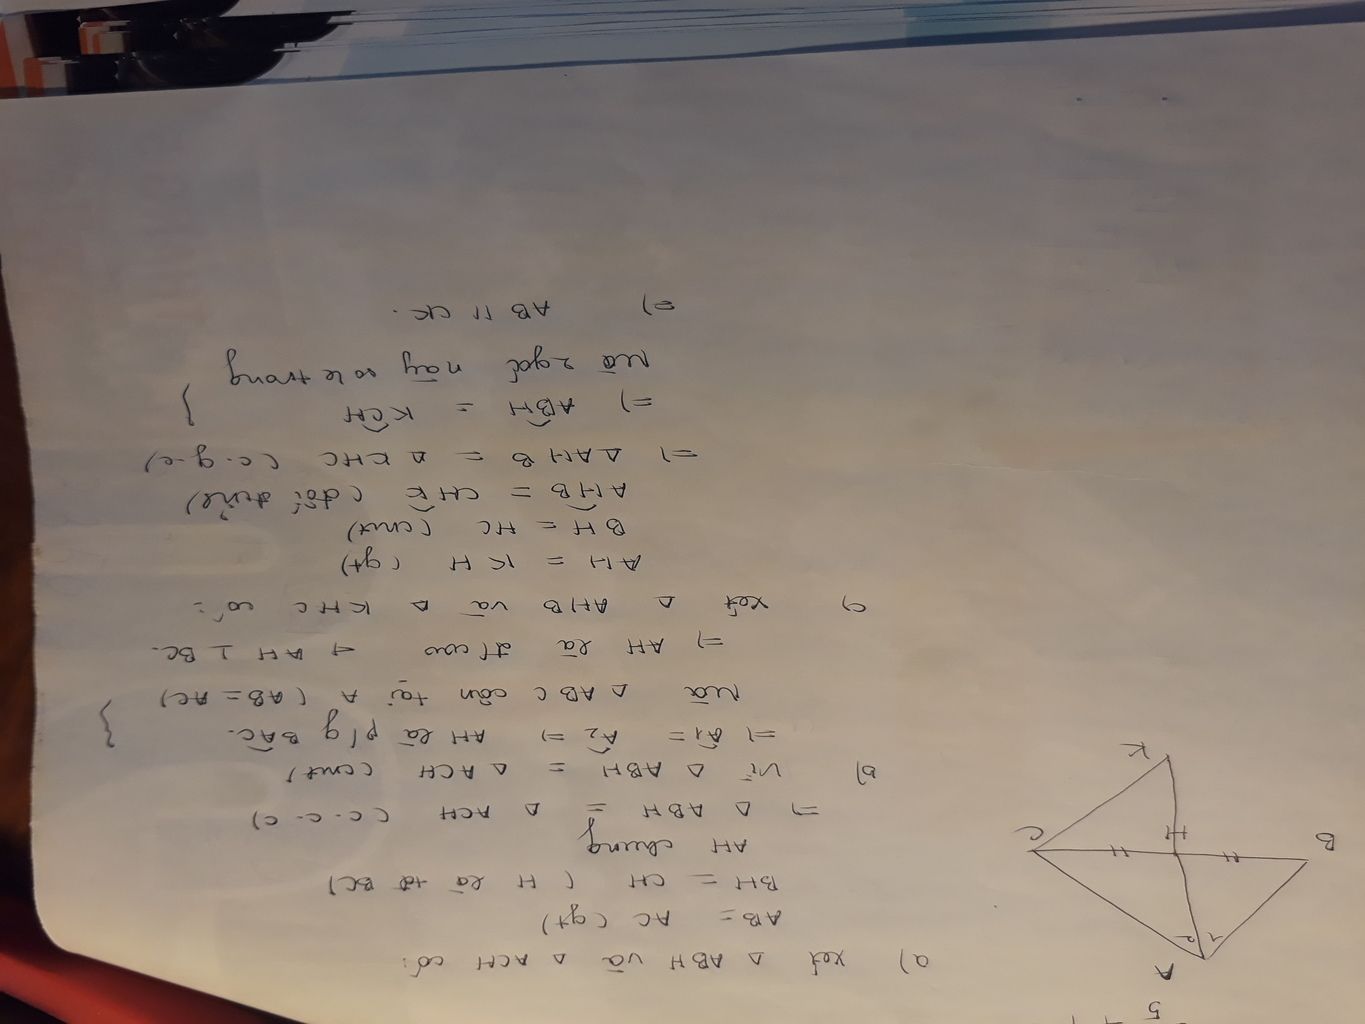 5
A
1 2
B
H
C
K
a) xét Δ ABH và Δ ACH có:
AB = AC (gt)
BH = CH ( H là tđ BC)
AH chung
=> Δ ABH = Δ ACH (c-c-c)
b) Vì Δ ABH = Δ ACH (cmt)
=> Â1 = Â2 => AH là p/g BÂC.
Mà Δ ABC cân tại A (AB = AC)
=> AH là đ/cao AH ⊥ BC.
c) xét Δ AHB và Δ KHC có:
AH = KH (gt)
BH = HC (cmt)
AĤB = CĤK (đối đỉnh)
=> Δ AHB = Δ KHC (c-g-c)
=> AB̂H = KĈH
Mà 2 góc này so le trong
=> AB // CK.